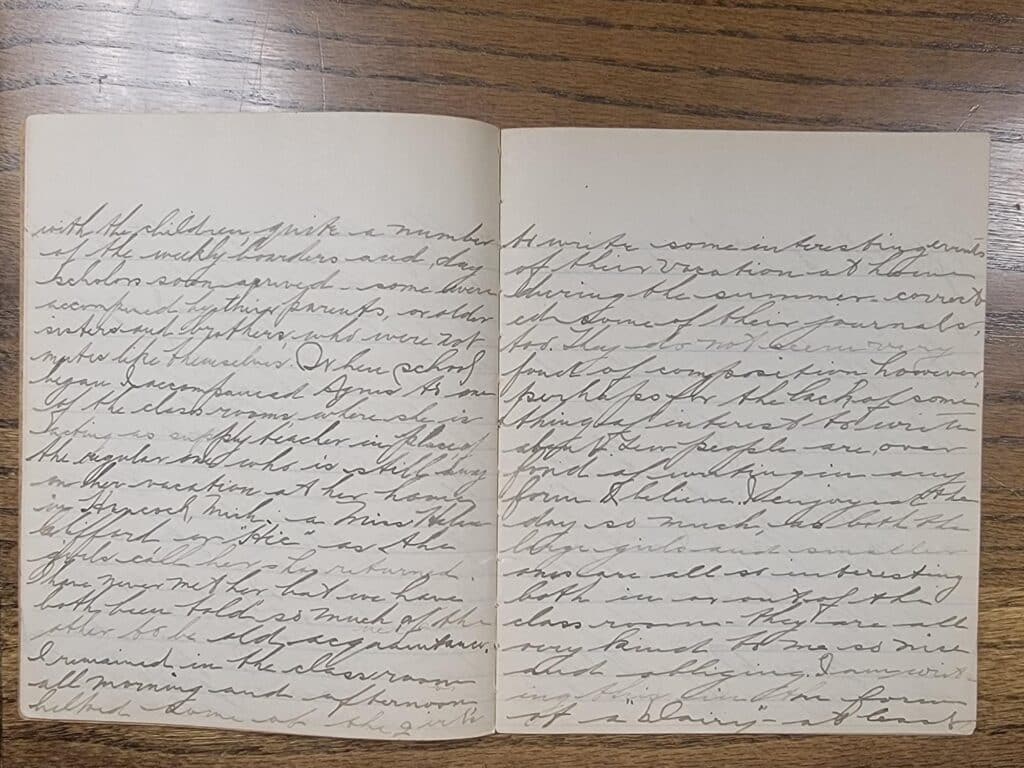 with the children, quite a number
of the weekly boarders and day
scholars soon arrived - some were
accompined by their parents, or older
sisters and brothers, who were not
mutes like themselves. When school
began I accompanied Agnes to one
of the class rooms where she is
acting as supply teacher in place of
the regular one who is still away
on her vacation at her home
in Hancock, Mich, a Miss Helen
Clifford or "Hic" as the
girls call her - she returned.
have never met her but we have
both been told so much of the
other to be old acquaintances.
I remained in the classroom
all morning and afternoon
helped some of the girls
to write some interesting events
of their vacation at home
during the summer - correct
ed some of their journals,
too. They do not seem very
fond of composition however,
perhaps for the lack of some
thing of interest to write
about. Few people are, over
fond of writing in any
form I believe. I enjoyed the
day so much, as both the
large girls and smaller
ones are all so interesting
both in or out of the
class room - they are all
very kind to me so nice
and obliging. I am writ-
ing this in the form
of a "Dairy" - at least